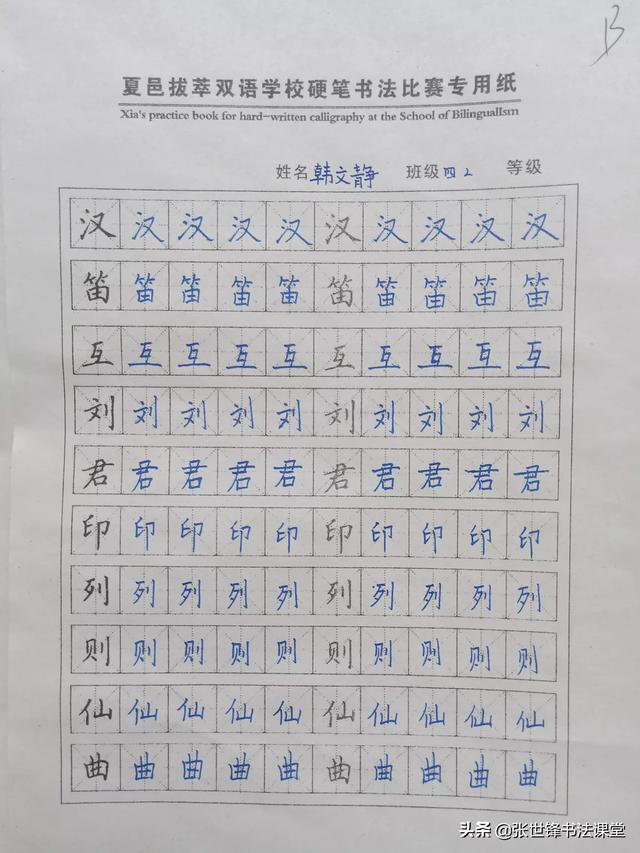 B
夏邑拔萃双语学校硬笔书法比赛专用纸
Xia's practice book for hard-written calligraphy at the School of Bilingualism
姓名 韩文静 班级 四2 等级
汉 汉 汉 汉 汉 汉 汉 汉 汉 汉
笛 笛 笛 笛 笛 笛 笛 笛 笛 笛
互 互 互 互 互 互 互 互 互 互
刘 刘 刘 刘 刘 刘 刘 刘 刘 刘
君 君 君 君 君 君 君 君 君 君
印 印 印 印 印 印 印 印 印 印
列 列 列 列 列 列 列 列 列 列
则 则 则 则 则 则 则 则 则 则
仙 仙 仙 仙 仙 仙 仙 仙 仙 仙
曲 曲 曲 曲 曲 曲 曲 曲 曲 曲
头条 @张世锋书法课堂